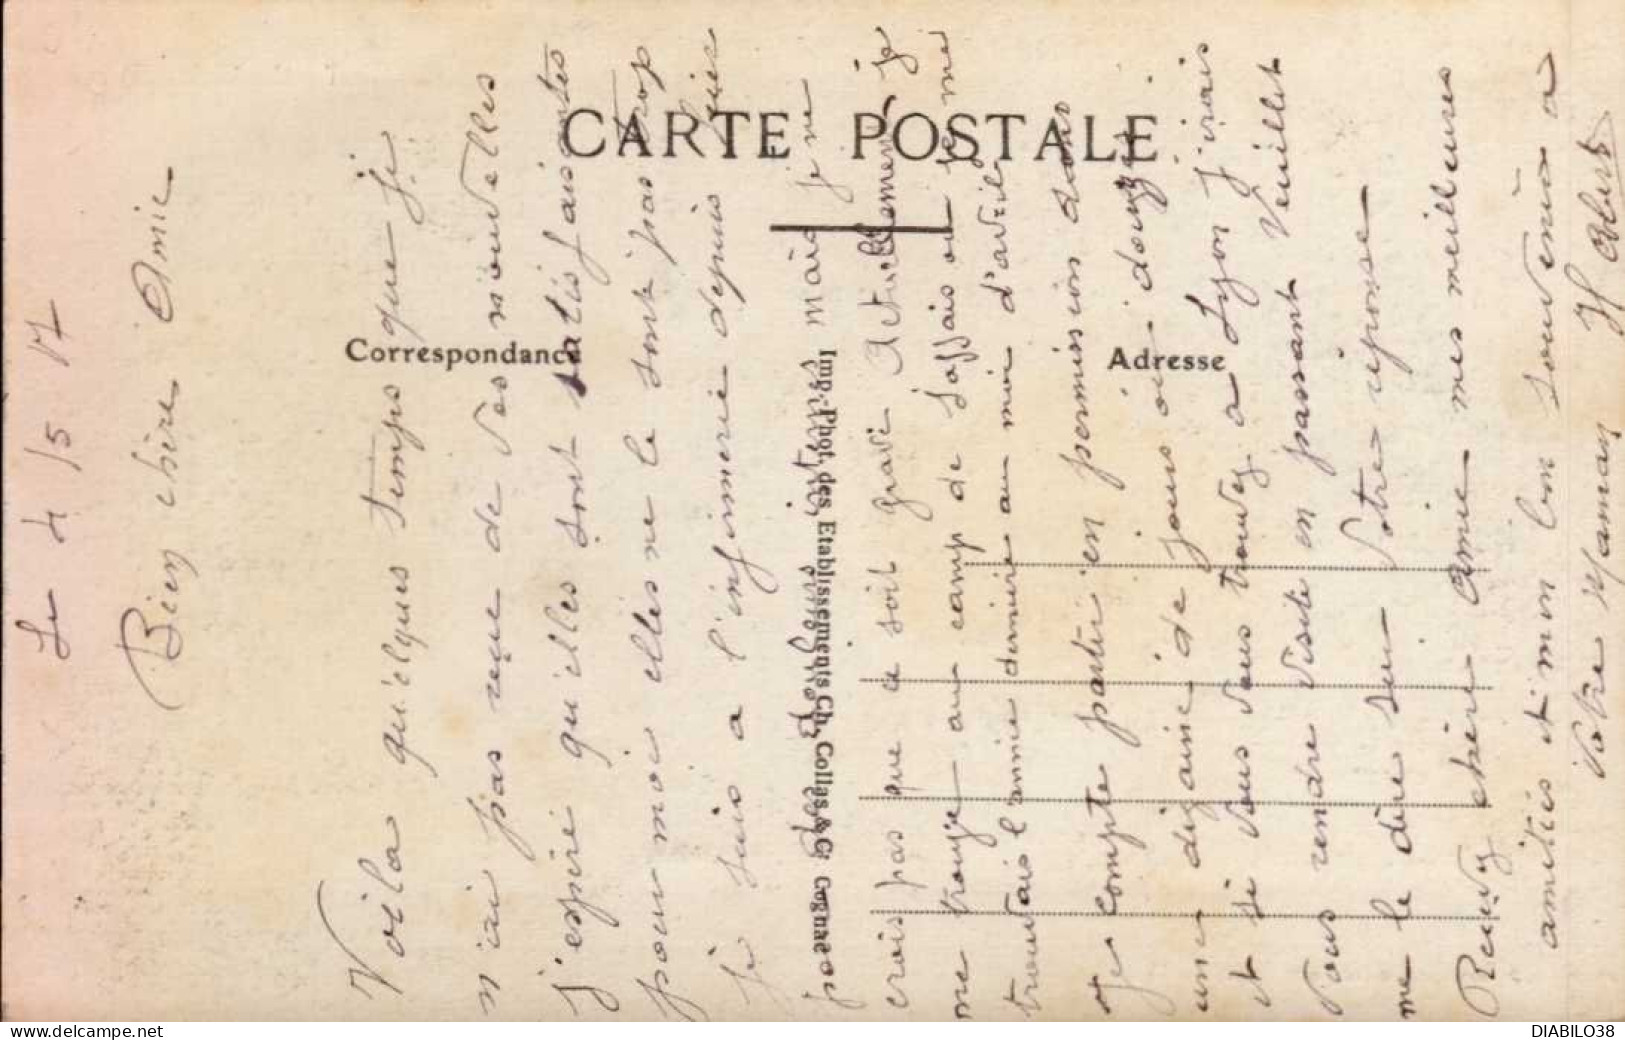 CARTE POSTALE
Correspondance
Adresse
Imp.-Phot. des Etablissements Ch. Collas & Cie Cognac
Le 4/5 17
Bien chère Amie
Voila quelques temps que je
n'ai pas reçue de Vos nouvelles
j'espère qu'elles sont satisfaisantes
pour moi elles ne le sont pas trop
je suis a l'infirmerie depuis hier
pour mais je ne
crois pas que ce soit grave Actuellement je
me trouve au camp de Saffais ou je me
trouvais l'année dernière au moi d'avril
Je compte partir en permission dans
une dizaine de jours ou douze.
et si Vous Vous trouvez a Lyon j'irais
Vous rendre Visite en passant Veuillez
me le dire sur Votre réponse
Recevez chère Amie mes meilleures
amitiés et mon bon Souvenir a
Votre Maman H
DIABILO38